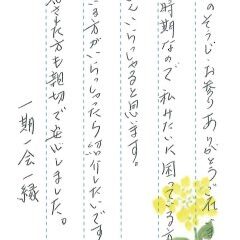 のそうじ・お参りありがとうござ
時期なので私みたいに困っている方
んいらっしゃると思います。
る方がいらっしゃったら紹介したいです
た方も親切で安心しました。
一期一会一縁